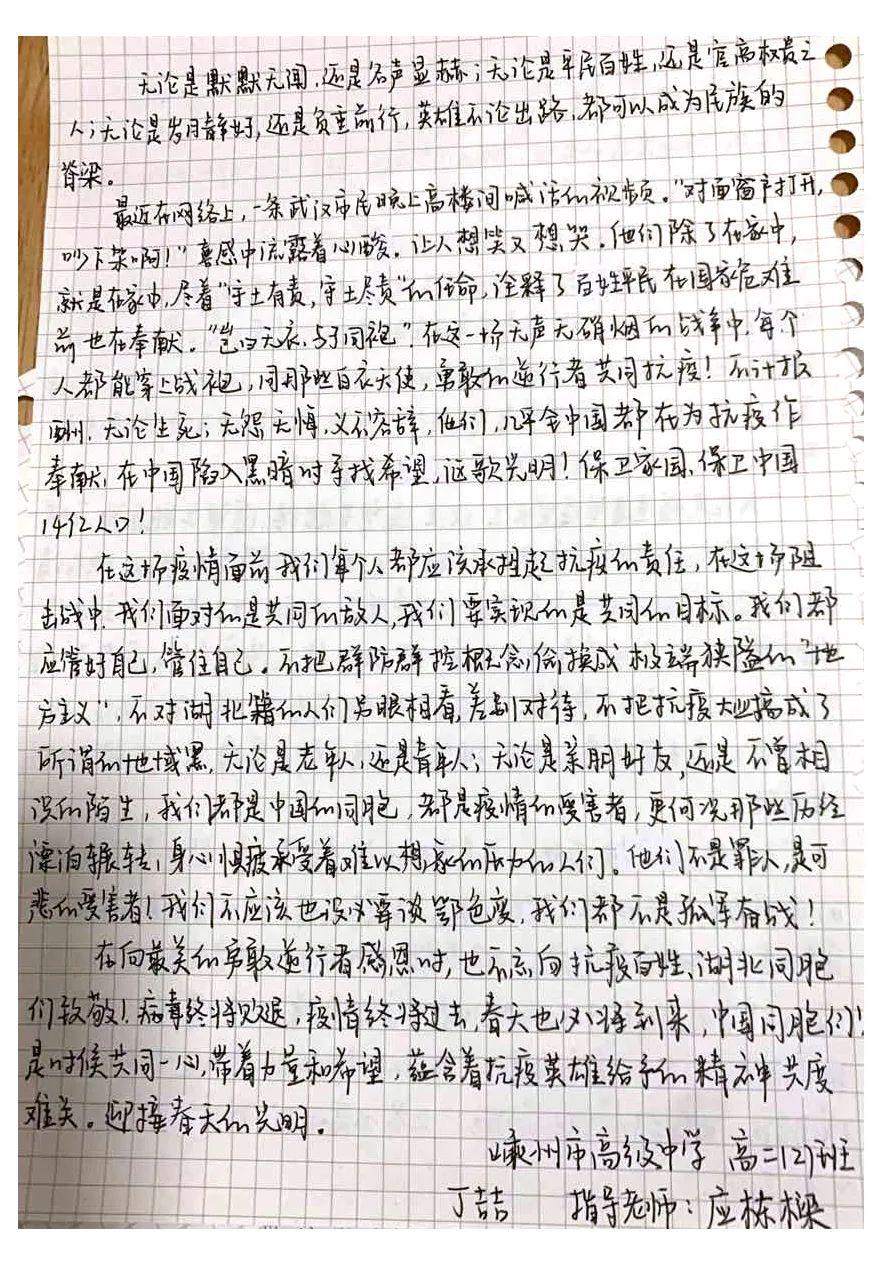 无论是默默无闻，还是名声显赫；无论是平民百姓，还是官高权贵之
人；无论是岁月静好，还是负重前行，英雄不论出路，都可以成为民族的
脊梁。
最近在网络上，一条武汉市民晚上高楼间喊话的视频。“对面窗户打开，
吵下架啊！”喜感中流露着心酸。让人想笑又想哭。他们除了在家中，
就是在家中，尽着“守土有责，守土尽责”的任命，诠释了百姓平民在国家危难
前也在奉献。“岂曰无衣，与子同袍”。在这一场无声无硝烟的战争中，每个
人都能穿上战袍，同那些白衣天使，勇敢的逆行者共同抗疫！不计报
酬，无论生死；无怨无悔，义不容辞，他们，几乎全中国都在为抗疫作
奉献，在中国陷入黑暗时寻找希望，讴歌光明！保卫家园，保卫中国
14亿人口！
在这场疫情面前我们每个人都应该承担起抗疫的责任，在这场阻
击战中，我们面对的是共同的敌人，我们要实现的是共同的目标。我们都
应管好自己，管住自己。不把群防群控概念偷换成极端狭隘的“地
方主义”，不对湖北籍的人们另眼相看，差别对待，不把抗疫大业搞成了
所谓的地域黑，无论是老年人，还是青年人；无论是亲朋好友，还是不曾相
识的陌生，我们都是中国的同胞，都是疫情的受害者，更何况那些历经
漂泊辗转，身心惧疲承受着难以想象的压力的人们。他们不是罪人，是可
悲的受害者！我们不应该也没必要谈鄂色变，我们都不是孤军奋战！
在向最美的勇敢逆行者感恩时，也不忘向抗疫百姓、湖北同胞
们致敬！病毒终将败退，疫情终将过去，春天也必将到来，中国同胞们！
是时候共同一心，带着力量和希望，蕴含着抗疫英雄给予的精神共度
难关。迎接春天的光明。
嵊州市高级中学 高二（2）班
丁喆 指导老师：应栋樑